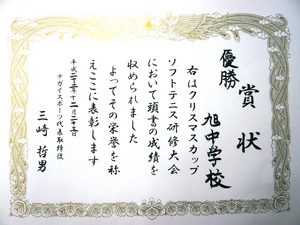 賞状
優勝
旭中学校
右はクリスマスカップ
ソフトテニス研修大会
において頭書の成績を
収められました
よってその栄誉を称
えここに表彰します
平成二十三年十二月二十五日
ナガイスポーツ代表取締役
三崎哲男